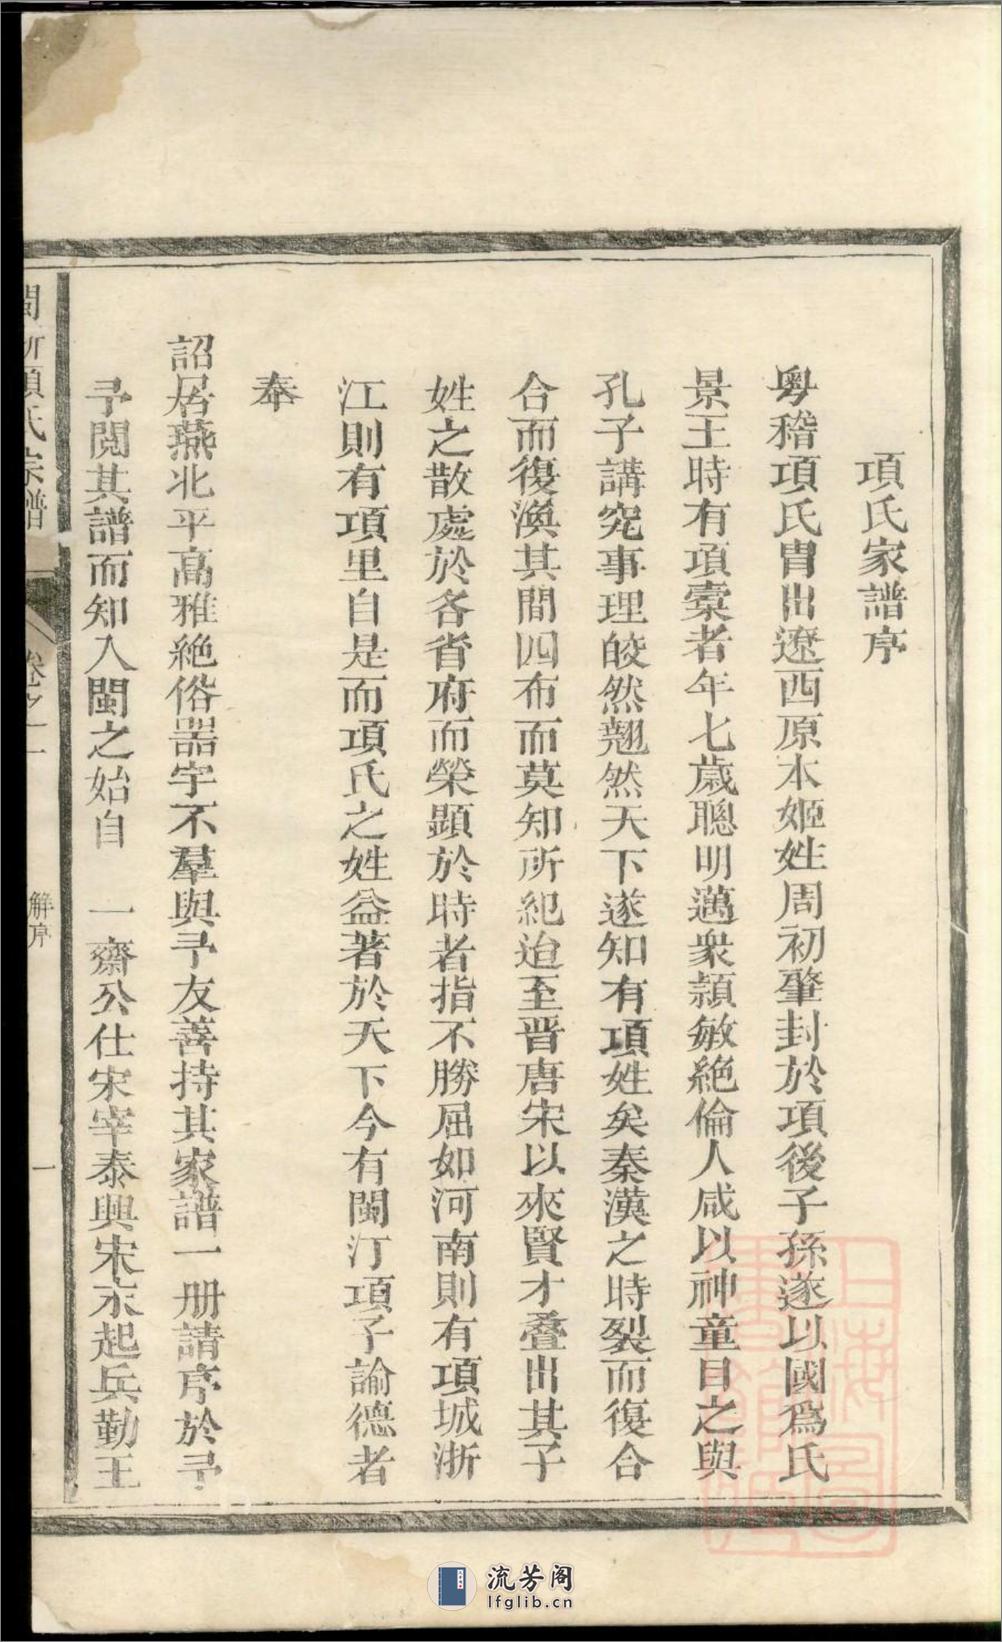 項氏家譜序
粵稽項氏胄出遼西原本姬姓周初肇封於項後子孫遂以國爲氏
景王時有項橐者年七歲聰明邁衆頴敏絕倫人咸以神童目之與
孔子講究事理皎然翹然天下遂知有項姓矣秦漢之時裂而復合
合而復渙其間四布而莫知所紀迨至晋唐宋以來賢才叠出其子
姓之散處於各省府而榮顯於時者指不勝屈如河南則有項城浙
江則有項里自是而項氏之姓益著於天下今有閩汀項子諭德者
奉
詔居燕北平高雅絕俗器宇不羣與予友善持其家譜一册請序於予
予閱其譜而知入閩之始自 一齋公仕宋宰泰興宋末起兵勤王
項氏宗譜
卷之一
解序
一
上海圖書館藏
流芳阁
lfglib.cn